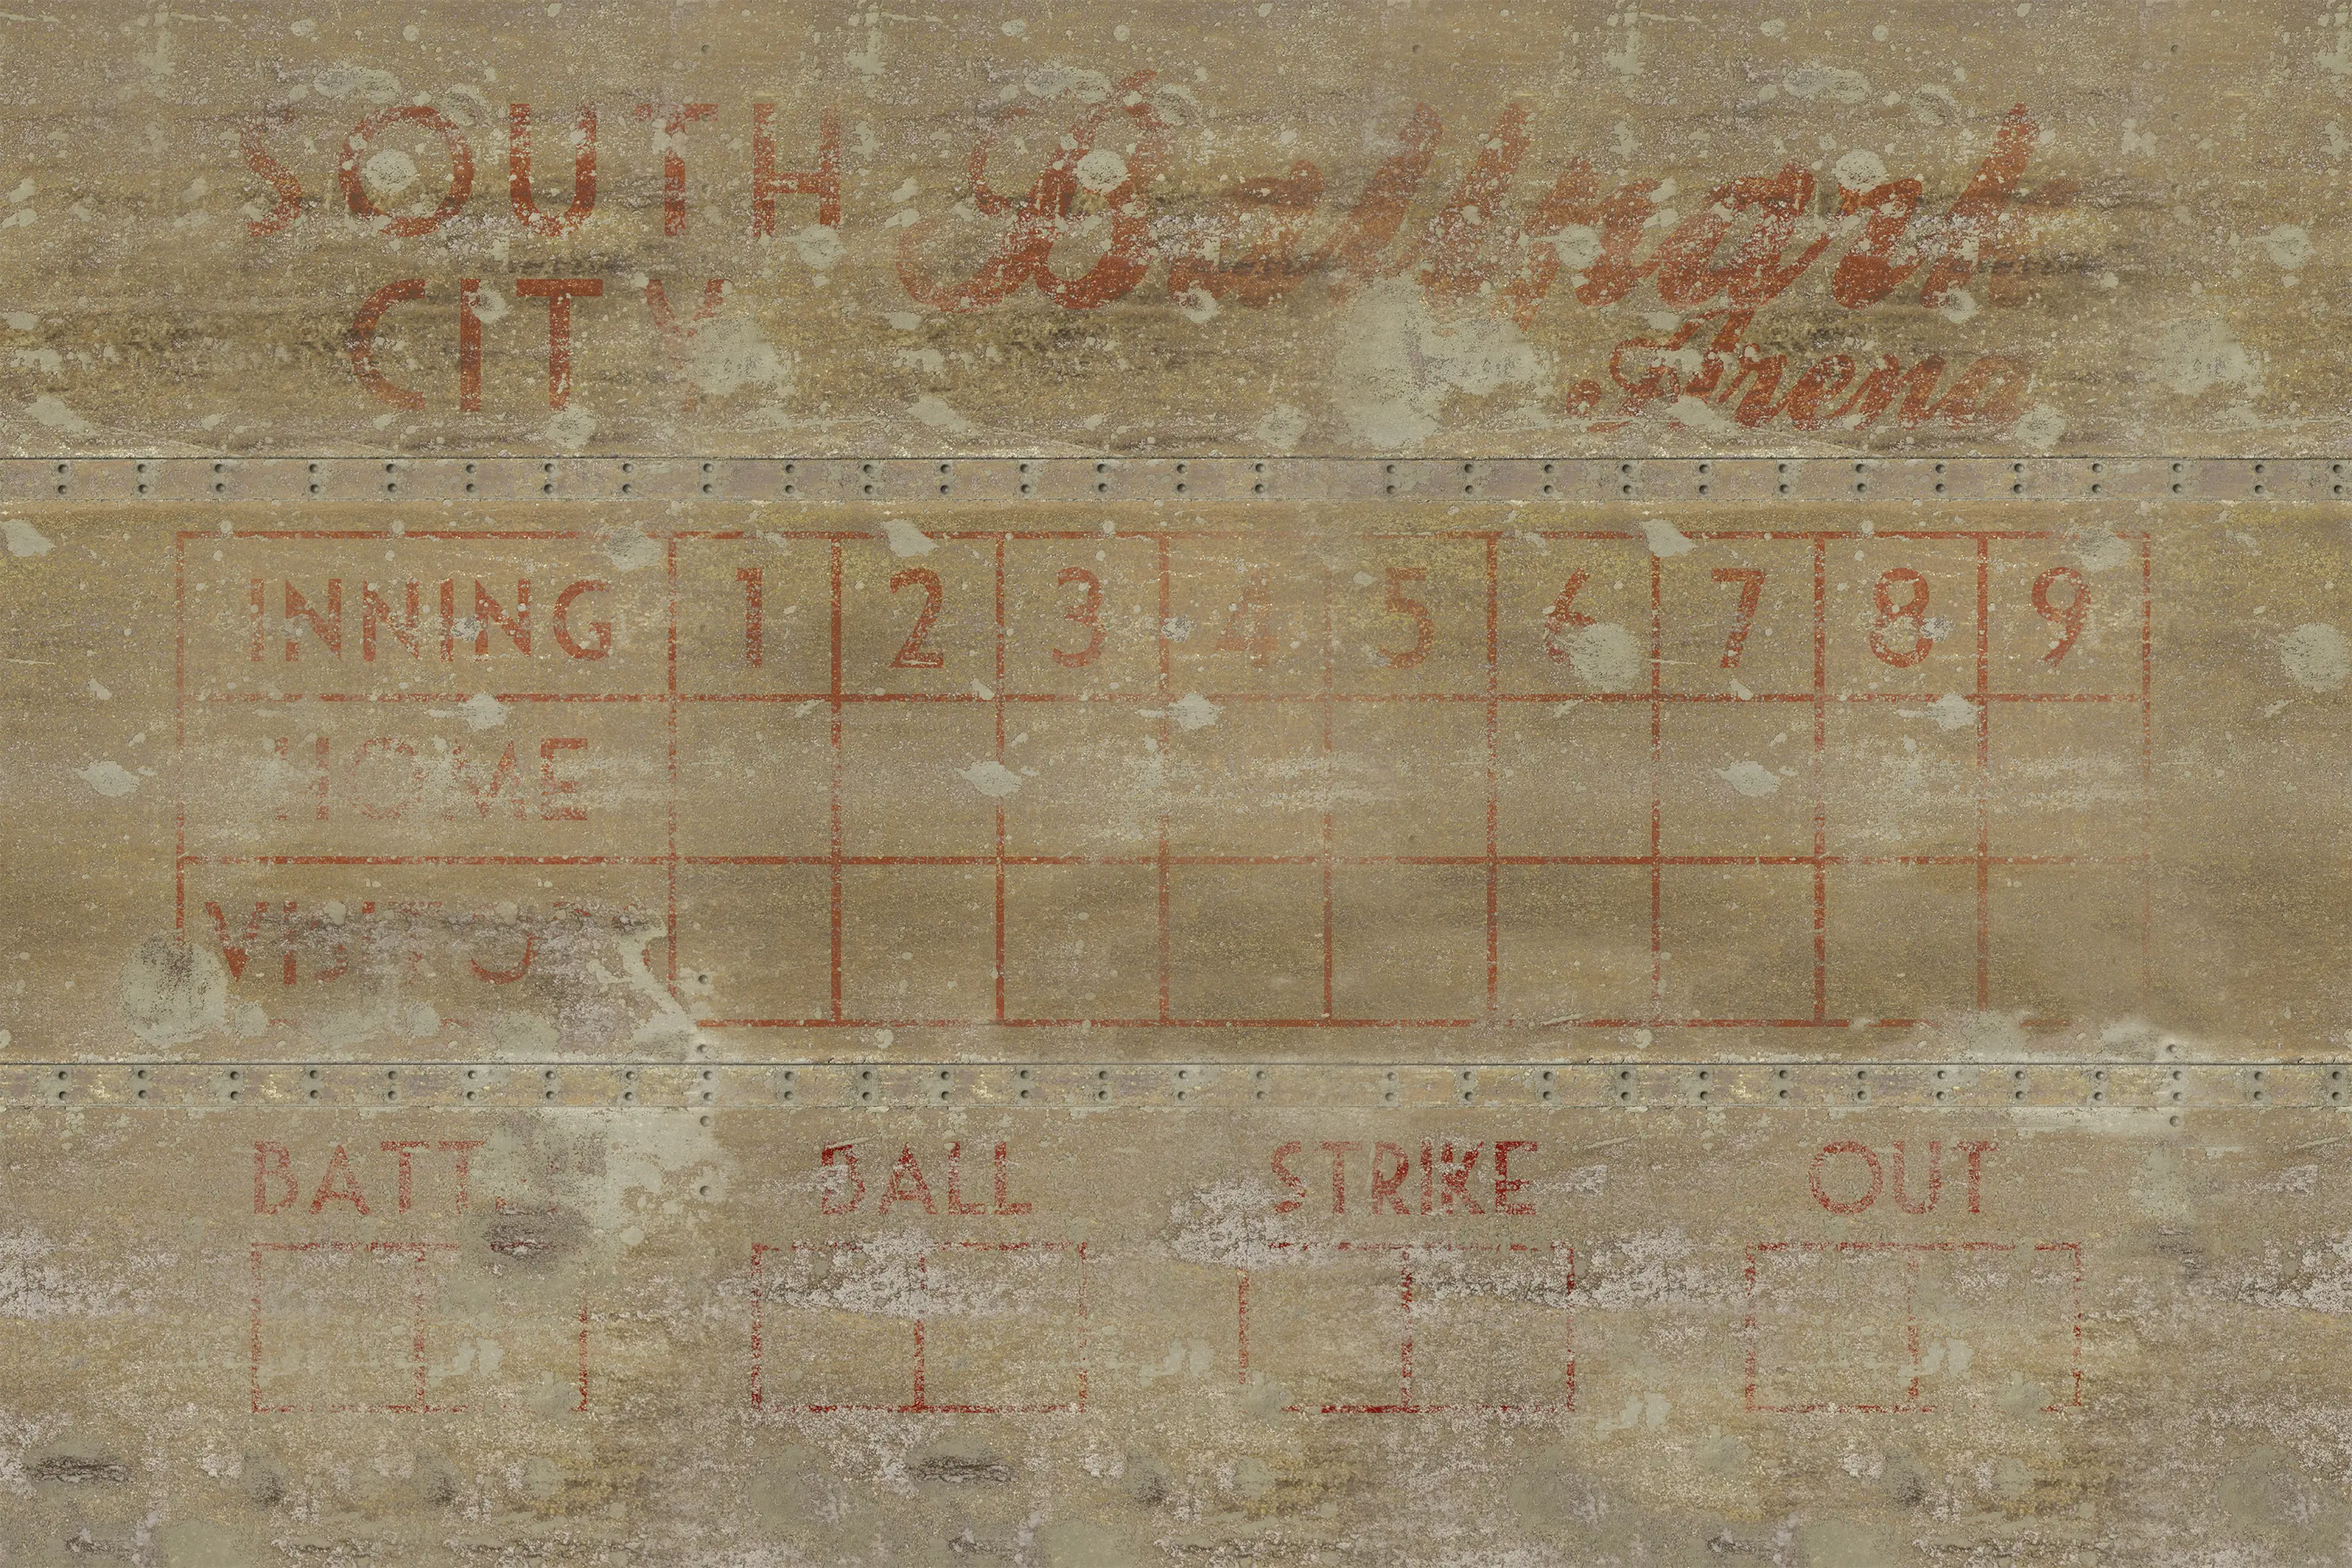 SOUTH
CITY
Ballpark
Arena
INNING 1 2 3 4 5 6 7 8 9
HOME
VISITOR
BATT
BALL STRIKE OUT